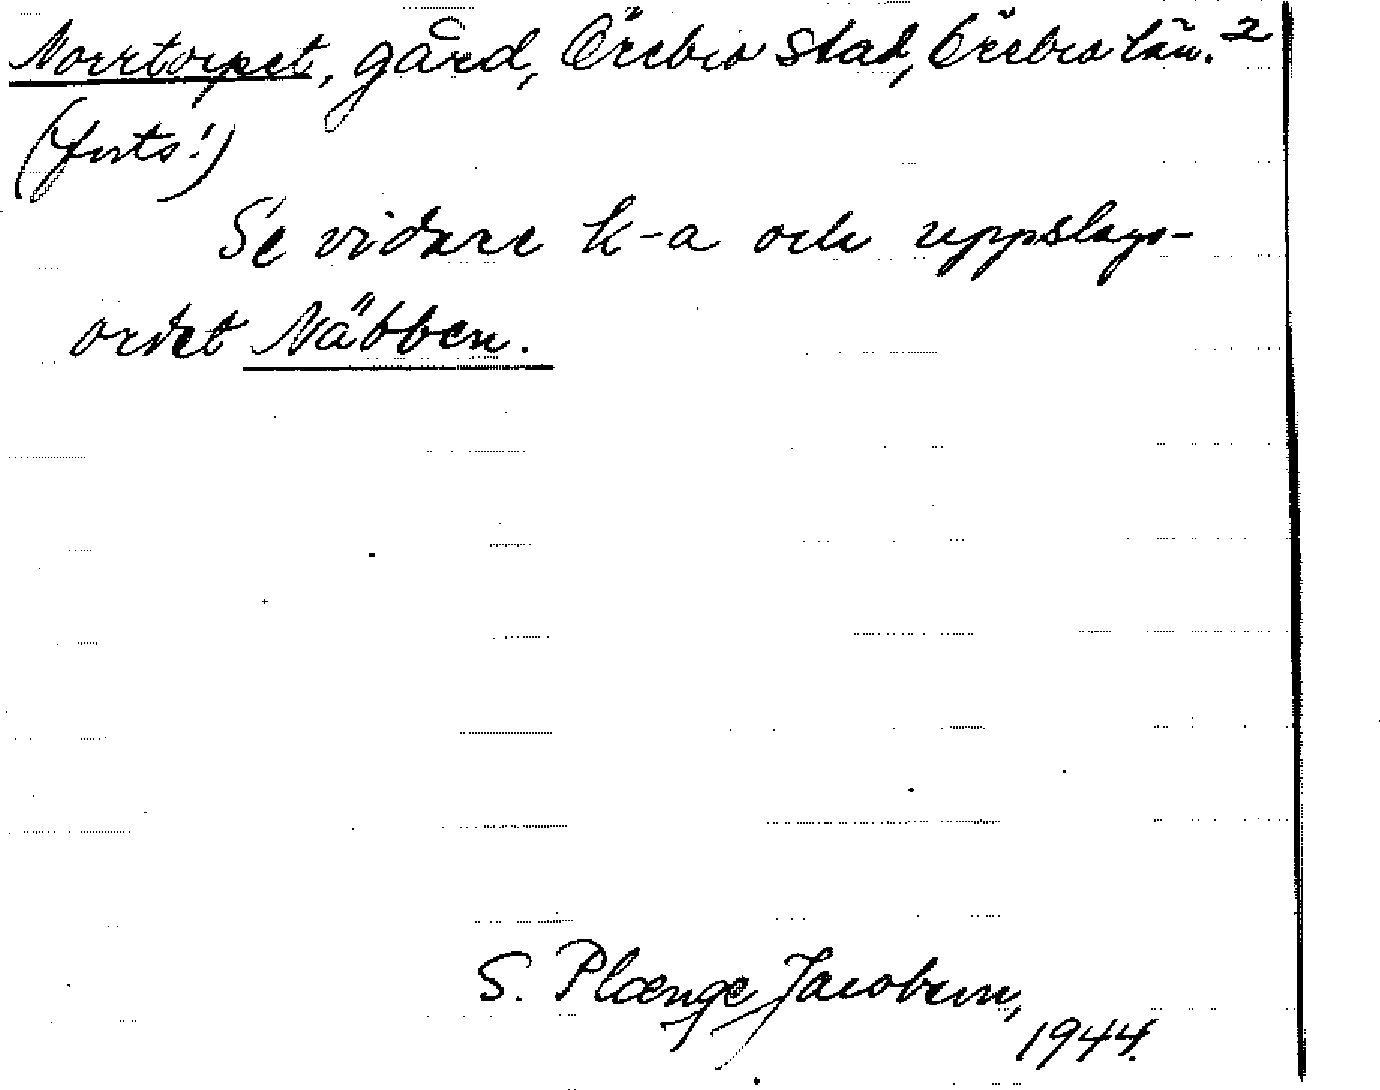 Norrtorpet, gård, Örebro stad, Örebro län. 2
(forts!)
Se vidare k-a och uppslags-
ordet Näbben.
S. Plænge Jacobsen,
1944.